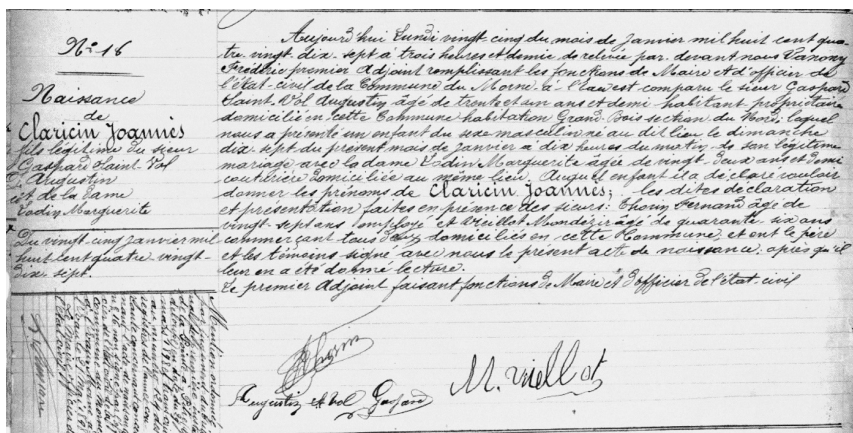 N° 16
Naissance
de
Claricin Joannès
fils légitime du sieur
Gaspard Saint-Vol
Augustin
et de la dame
Lodin Marguerite
Du vingt cinq janvier mil
huit cent quatre vingt
dix-sept.
Aujourd'hui Lundi vingt cinq du mois de Janvier mil huit cent qua-
tre-vingt-dix-sept à trois heures et demie de relevée par devant nous Vanony
Frédéric premier Adjoint remplissant les fonctions de Maire et d'officier de
l'état-civil de la Commune du Morne-à-l'eau est comparu le sieur Gaspard
Saint-Vol Augustin âgé de trente et un ans et demi habitant propriétaire
domicilié en cette Commune habitation Grand Bois section du Nord; lequel
nous a présenté un enfant du sexe masculin né au dit lieu le dimanche
dix-sept du présent mois de janvier à dix heures du matin de son légitime
mariage avec la dame Lodin Marguerite âgée de vingt-deux ans et demi
couturière domiciliée au même lieu. Auquel enfant il a déclaré vouloir
donner les prénoms de Claricin Joannès; les dites déclaration
et présentation faites en présence des sieurs: Thorin Fernand âgé de
vingt-sept ans employé et Vieillot Mondézir âgé de quarante-six ans
commerçant tous deux domiciliés en cette Commune, et ont le père
et les témoins signé avec nous le présent acte de naissance, après qu'il
leur en a été donné lecture.
Le premier Adjoint faisant fonctions de Maire et d'officier de l'état-civil
Thorin
M. Viellot
Augustin St vol Gaspard